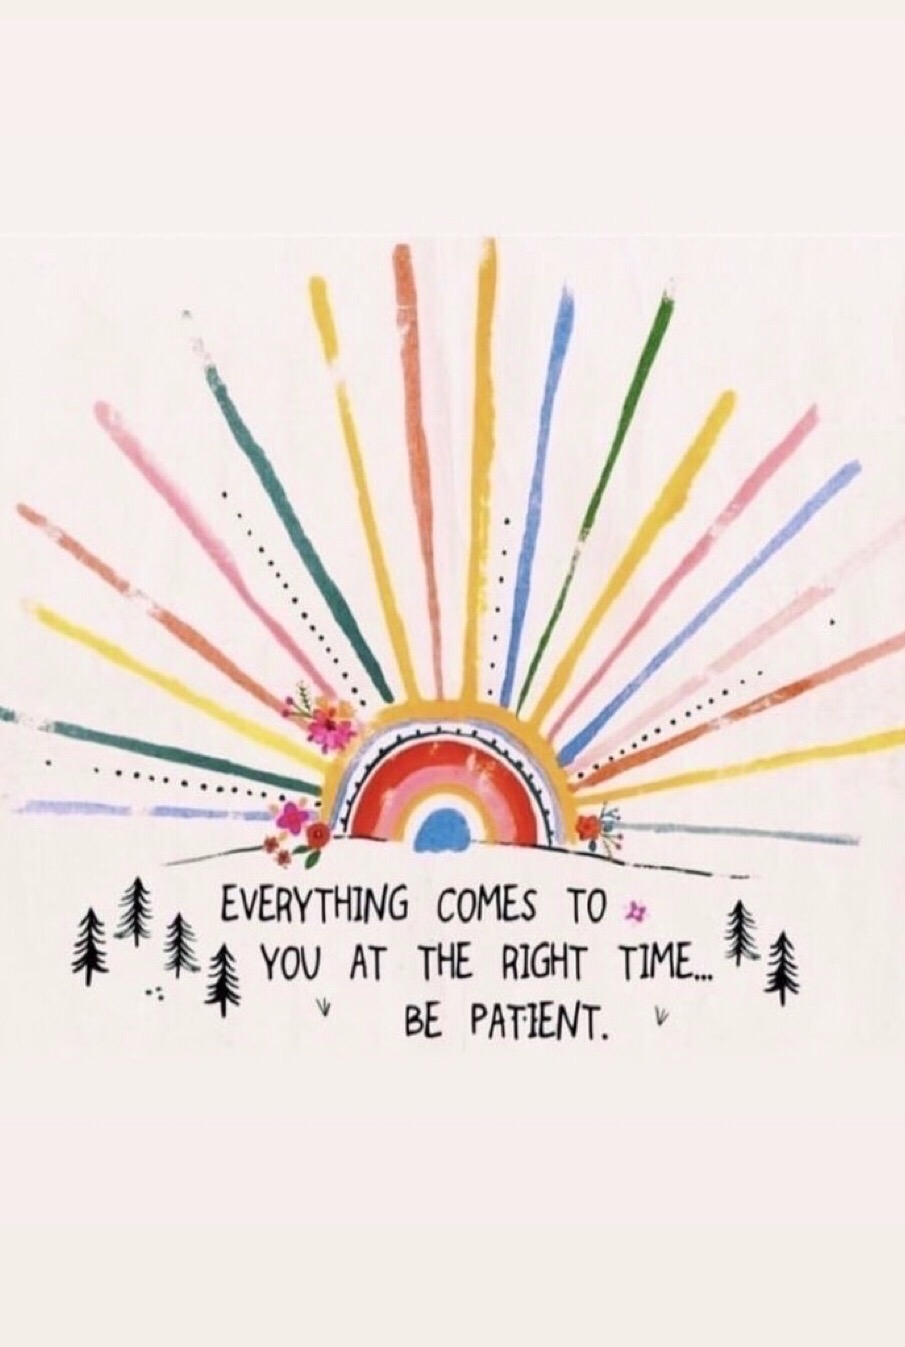 EVERYTHING COMES TO
YOU AT THE RIGHT TIME...
BE PATIENT.